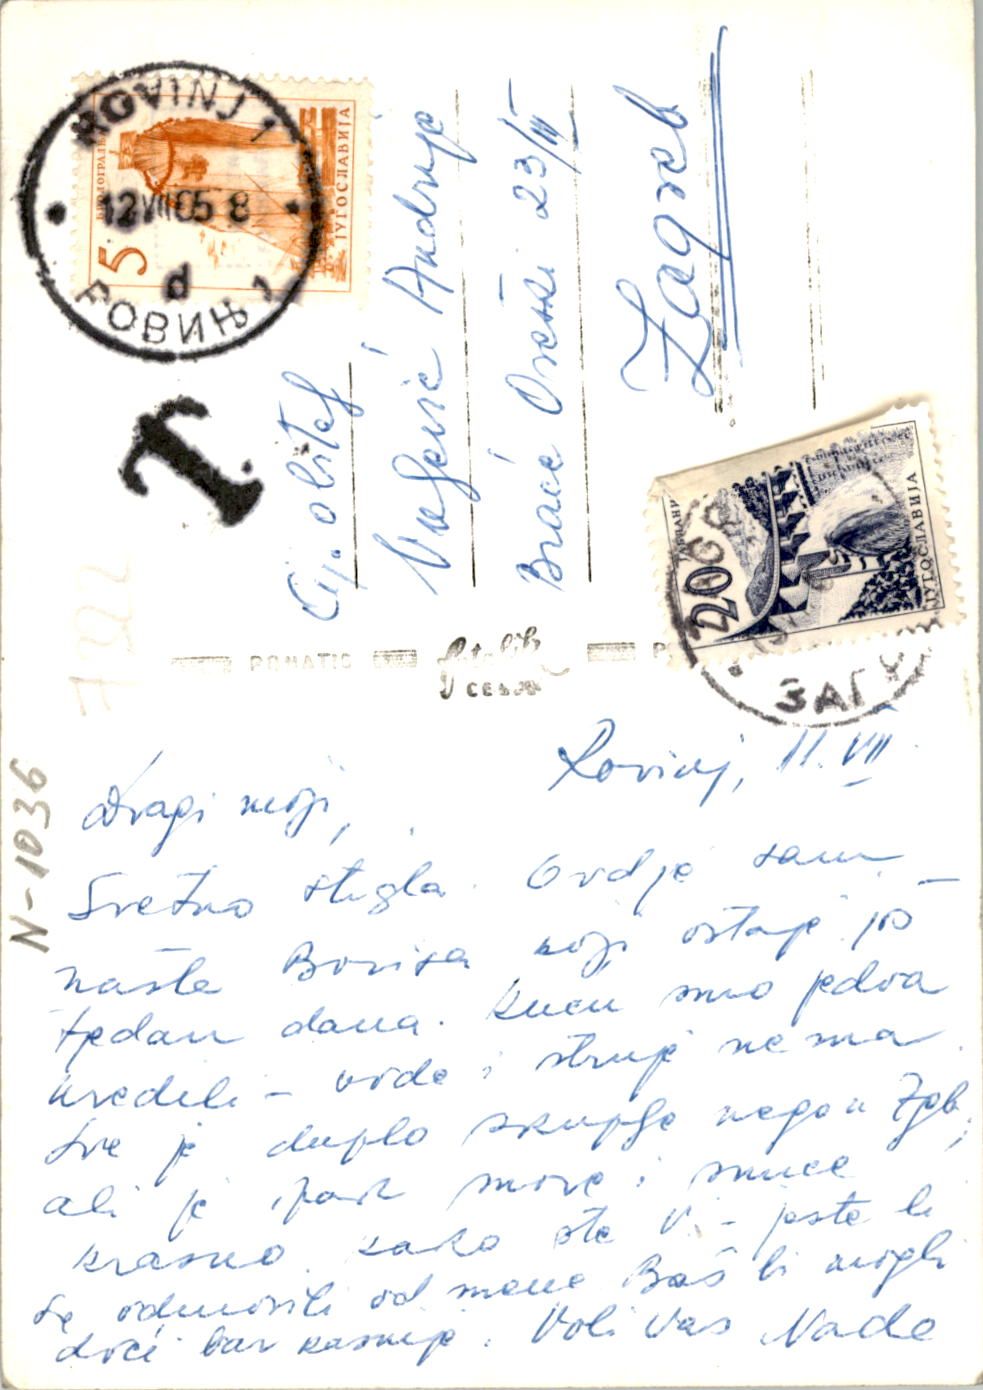 ROVINJ 1
12 VII 65 8
d
РОВИЊ 1
5
ЈУГОСЛАВИЈА
T
Cij. obitelj
Andrije
Braće Oreški 23/III
Zagreb
20
ЈУГОСЛАВИЈА
ЗАГ
N-1036
Rovinj, 11. VII
Dragi moji,
Sretno stigla. Ovdje sam
našla Borisa koji ostaje još
tjedan dana. Kuću smo jedva
uredili - vode i struje nema.
Sve je duplo skuplje nego u Zgb,
ali je ipak more i sunce
krasno. Kako ste Vi - jeste li
se odmorili od mene. Baš bi mogli
doći bar kasnije. Voli Vas Nada